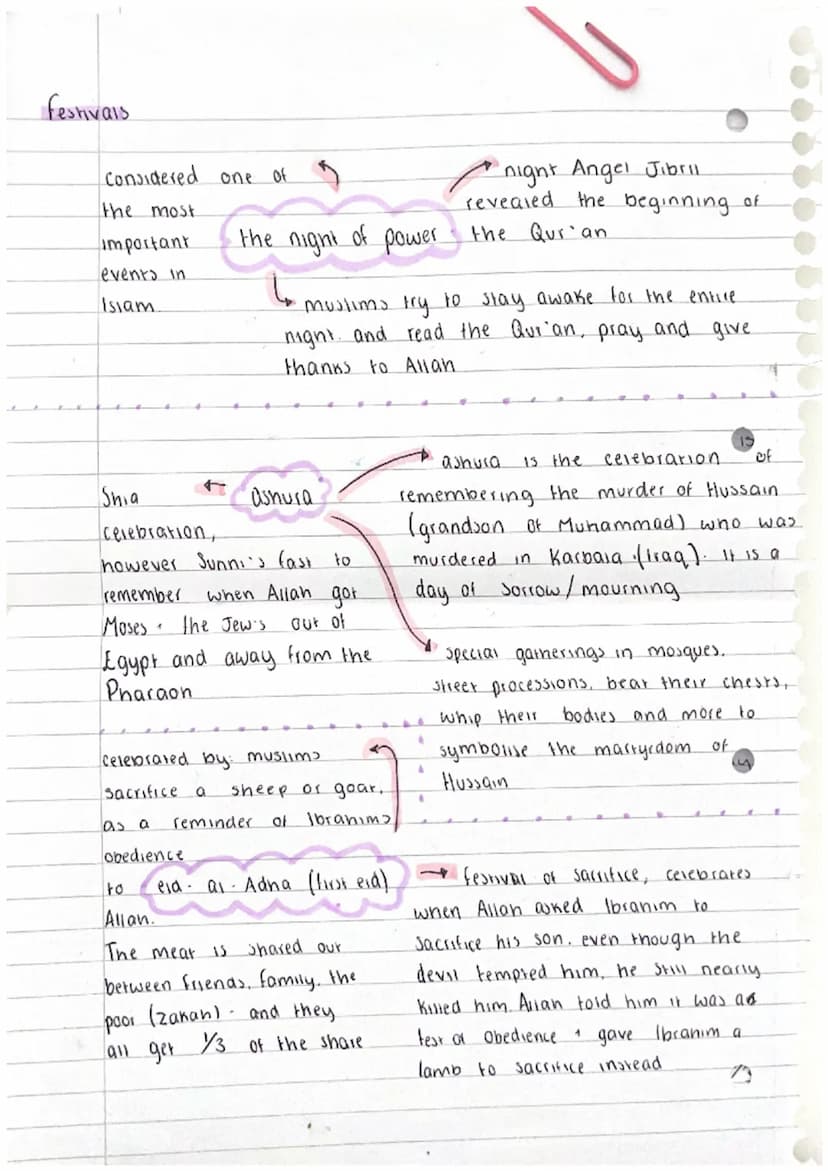 festivals
considered one of
the most
important
events in
Islam
the night of power
night Angel Jibril
revealed the beginning of
the Qur'an
muslims try to stay awake for the entire
night and read the Qur'an, pray and give
thanks to Allah
Shia
celebration,
however Sunni's fast to
remember when Allah got
Moses + the Jew's out of
Egypt and away from the
Pharaoh
ashura
ashura is the celebration of
remembering the murder of Hussain
(grandson of Muhammad) who was
murdered in Karbala (Iraq). It is a
day of sorrow/mourning
special gatherings in mosques,
street processions, beat their chests,
whip their bodies and more to
symbolise the martyrdom of
Hussain
celebrated by: muslims
sacrifice a sheep or goat,
as a reminder of Ibrahims
obedience
to
Allah.
eid-al-Adha (first eid)
The meat is shared out
between friends, family, the
poor (zakah) - and they
all get 1/3 of the share
festival of sacrifice, celebrates
when Allah asked Ibrahim to
sacrifice his son. even though the
devil tempted him, he still nearly
killed him. Allah told him it was a
test of obedience + gave Ibrahim a
lamb to sacrifice instead